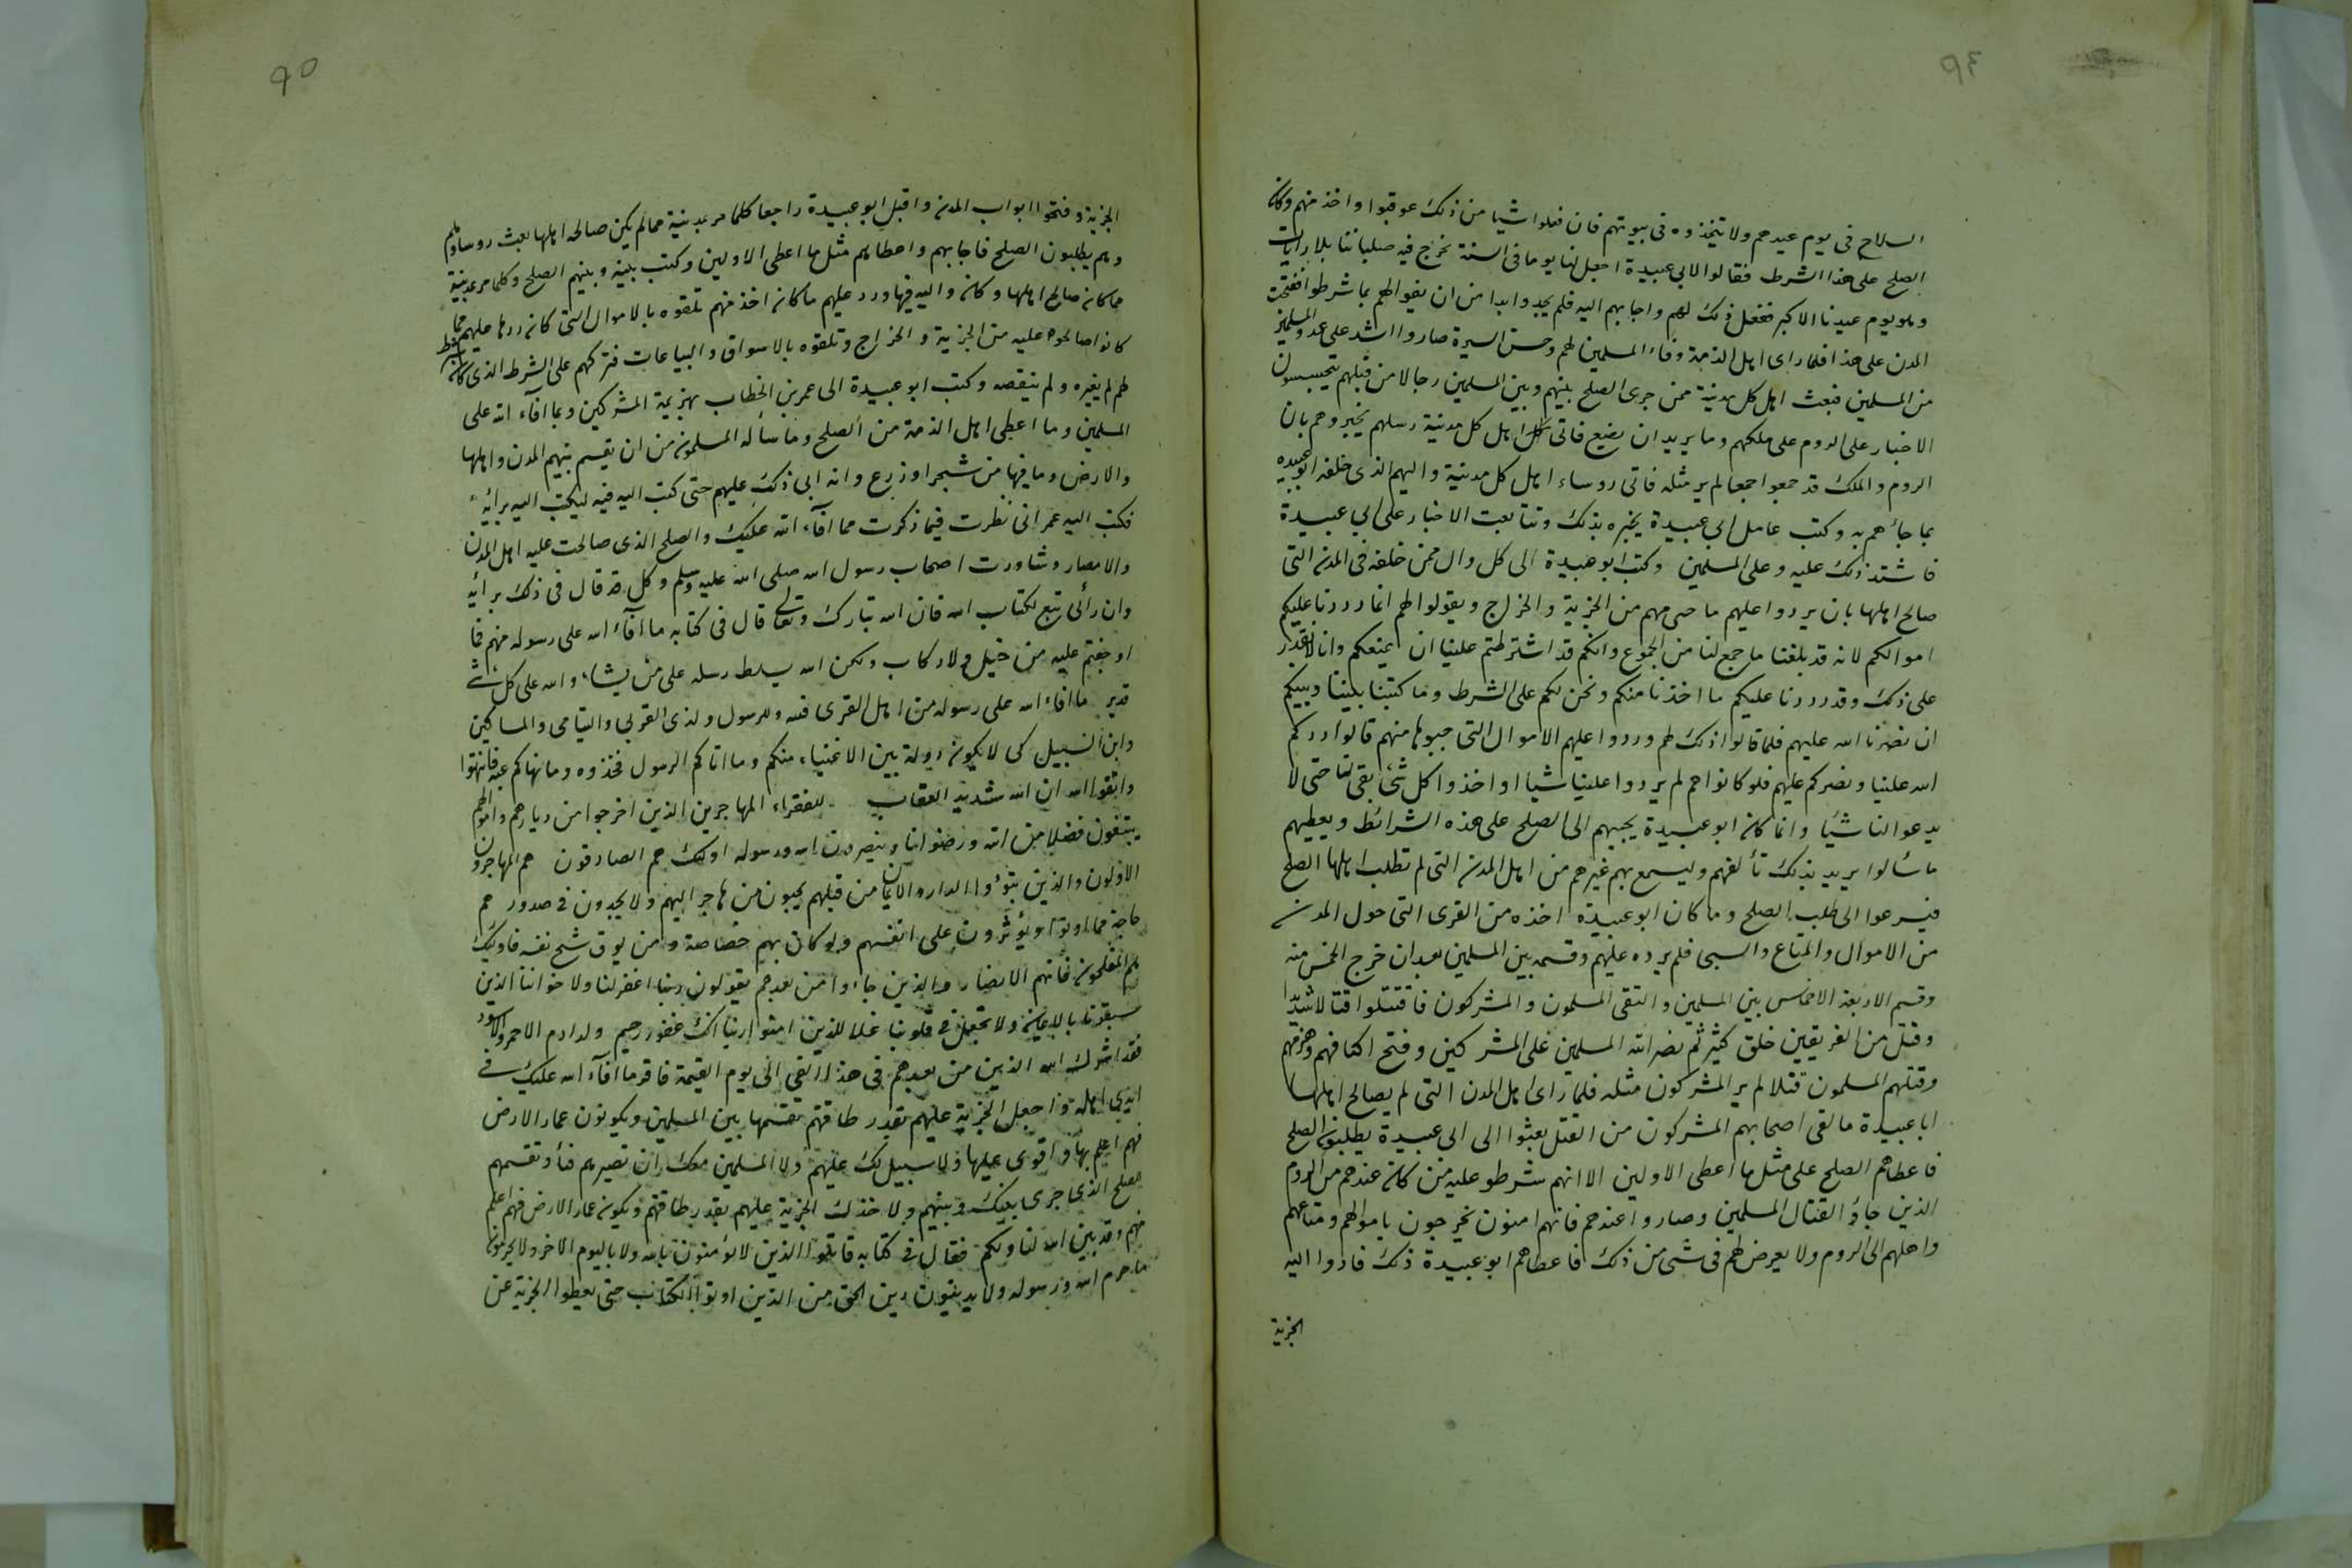 ٩٤
السلاح فى يوم عيدهم ولا يتخذوه فى بيوتهم فان فعلوا شيا من ذلك عوقبوا واخذ منهم وكان
الصلح على هذا الشرط فقالوا لابى عبيدة اجعل لنا يوما فى السنة نخرج فيه صلباننا بلا رايات
وهو يوم عيدنا الاكبر ففعل ذلك لهم واجابهم اليه فلم يجدوا بدا من ان يفوا لهم بما شرطوا ففتحت
المدن على هذا فلما راى اهل الذمة وفاء المسلمين لهم وحسن السيرة صاروا اشد على عدو المسلمين
من المسلمين فبعث اهل كل مدينة ممن جرى الصلح بينهم وبين المسلمين رجالا من قبلهم يتجسسون
الاخبار على الروم على ملكهم وما يريد ان يضع فاتى اهل كل مدينة رسلهم يخبروهم بان
الروم والملك قد جمعوا جمعا لم ير مثله فاتى روساء اهل كل مدينة واليهم الذى خلفه ابو عبيده
بما جاءهم به وكتب عامل ابى عبيدة يخبره بذلك وتتابعت الاخبار على ابى عبيدة
فاشتد ذلك عليه وعلى المسلمين وكتب ابو عبيدة الى كل وال ممن خلفه فى المدن التى
صالح اهلها بان يردوا عليهم ما جبى منهم من الجزية والخراج ويقولوا لهم انما رددنا عليكم
اموالكم لانه قد بلغنا ما جمع لنا من الجموع وانكم قد اشترطتم علينا ان نمنعكم وانا لا نقدر
على ذلك وقد رددنا عليكم ما اخذنا منكم ونحن لكم على الشرط وما كتبنا بيننا وبينكم
ان نصرنا الله عليهم فلما قالوا ذلك لهم وردوا عليهم الاموال التى جبوها منهم قالوا ردكم
الله علينا ونصركم عليهم فلو كانوا هم لم يردوا علينا شيا واخذوا كل شئ بقى لنا حتى لا
يدعوا لنا شيًا وانما كان ابو عبيدة يجيبهم الى الصلح على هذه الشرائط ويعطيهم
ما سألوا يريد بذلك تألفهم وليسمع بهم غيرهم من اهل المدن التى لم تطلب اهلها الصلح
فيسرعوا الى طلب الصلح وما كان ابو عبيدة اخذه من القرى التى حول المدن
من الاموال والمتاع والسبى فلم يرده عليهم وقسمه بين المسلمين بعد ان خرج الخمس منه
وقسم الاربعة الاخماس بين المسلمين والتقى المسلمون والمشركون فاقتتلوا قتالا شديدا
وقتل من الفريقين خلق كثير ثم نصر الله المسلمين على المشركين وفتح اكتافهم وهزمهم
وقتلهم المسلمون قتلا لم ير المشركون مثله فلما راى اهل المدن التى لم يصالح اهلها
ابا عبيدة ما لقى اصحابهم المشركون من القتل بعثوا الى ابى عبيدة يطلبون الصلح
فاعطاهم الصلح على مثل ما اعطى الاولين الا انهم شرطوا عليه من كان عندهم من الروم
الذين جاؤ القتال المسلمين وصاروا عندهم فانهم امنون يخرجون باموالهم ومتاعهم
واهلهم الى الروم ولا يعرض لهم فى شئ من ذلك فاعطاهم ابو عبيدة ذلك فادوا اليه
الجزية
٩٥
الجزية وفتحوا ابواب المدن واقبل ابو عبيدة راجعا كلما مر بمدينة ممالم يكن صالحه اهلها بعث روساؤهم
وهم يطلبون الصلح فاجابهم واعطاهم مثل ما اعطى الاولين وكتب بينه وبينهم الصلح وكلما مر بمدينة
مما كان صالح اهلها وكان واليه فيها ورد عليهم ما كان اخذ منهم تلقوه بالاموال التى كان ردها عليهم مما
كانوا صالحوه عليه من الجزية والخراج وتلقوه بالاسواق والبياعات فتركهم على الشرط الذى كان شرط
لهم لم يغيره ولم ينقصه وكتب ابو عبيدة الى عمر بن الخطاب بهزيمة المشركين وبما افآء الله على
المسلمين وما اعطى اهل الذمة من الصلح وما سأله المسلمون من ان يقسم بينهم المدن واهلها
والارض وما فيها من شجر او زرع وانه ابى ذلك عليهم حتى كتب اليه فيه ليكتب اليه برائيه
فكتب اليه عمر انى نظرت فيما ذكرت مما افآء الله عليك والصلح الذى صالحت عليه اهل المدن
والامصار وشاورت اصحاب رسول الله صلى الله عليه وسلم وكل قد قال فى ذلك برأيه
وان رأئى تبع لكتاب الله فان الله تبارك وتعالى قال فى كتابه ما افآء الله على رسوله منهم فما
اوجفتم عليه من خيل ولا ركاب ولكن الله يسلط رسله على من يشاء والله على كل شئ
قدير ما افاء الله على رسوله من اهل القرى فلله وللرسول ولذى القربى واليتامى والمساكين
وابن السبيل كى لا يكون دولة بين الاغنياء منكم وما اتاكم الرسول فخذوه وما نهاكم عنه فانتهوا
واتقوا الله ان الله شديد العقاب للفقراء المهاجرين الذين اخرجوا من ديارهم واموالهم
يبتغون فضلا من الله ورضوانا وينصرون الله ورسوله اولئك هم الصادقون هم المهاجرون
الاولون والذين تبؤوا الدار والايمان من قبلهم يحبون من هاجر اليهم ولا يجدون فى صدورهم
حاجة مما اوتوا ويؤثرون على انفسهم ولو كان بهم خصاصة ومن يوق شح نفسه فاولئك
هم المفلحون فانهم الانصار والذين جاءوا من بعدهم يقولون ربنا اغفر لنا ولاخواننا الذين
سبقونا بالايمان ولا تجعل فى قلوبنا غلا للذين امنوا ربنا انك غفور رحيم ولد ادم الاحمر والاسود
فقد اشرك الله الذين من بعدهم فى هذا الفئ الى يوم القيمة فاقر ما افآء الله عليك فى
ايدى اهله واجعل الجزية عليهم بقدر طاقتهم تقسمها بين المسلمين ويكونون عمار الارض
فهم اعلم بها واقوى عليها ولا سبيل لك عليهم ولا المسلمين معك ان تصيرهم فيأ وتقسمهم
للصلح الذى جرى بينك وبينهم ولا خذك الجزية عليهم بقدر طاقتهم ويكون عمار الارض فهم اعلم
منهم وقد بين الله لنا ولكم فقال فى كتابه قاتلوا الذين لا يؤمنون بالله ولا باليوم الاخر ولا يحرمون
ما حرم الله ورسوله ولا يدينون دين الحق من الذين اوتوا الكتاب حتى يعطوا الجزية عن